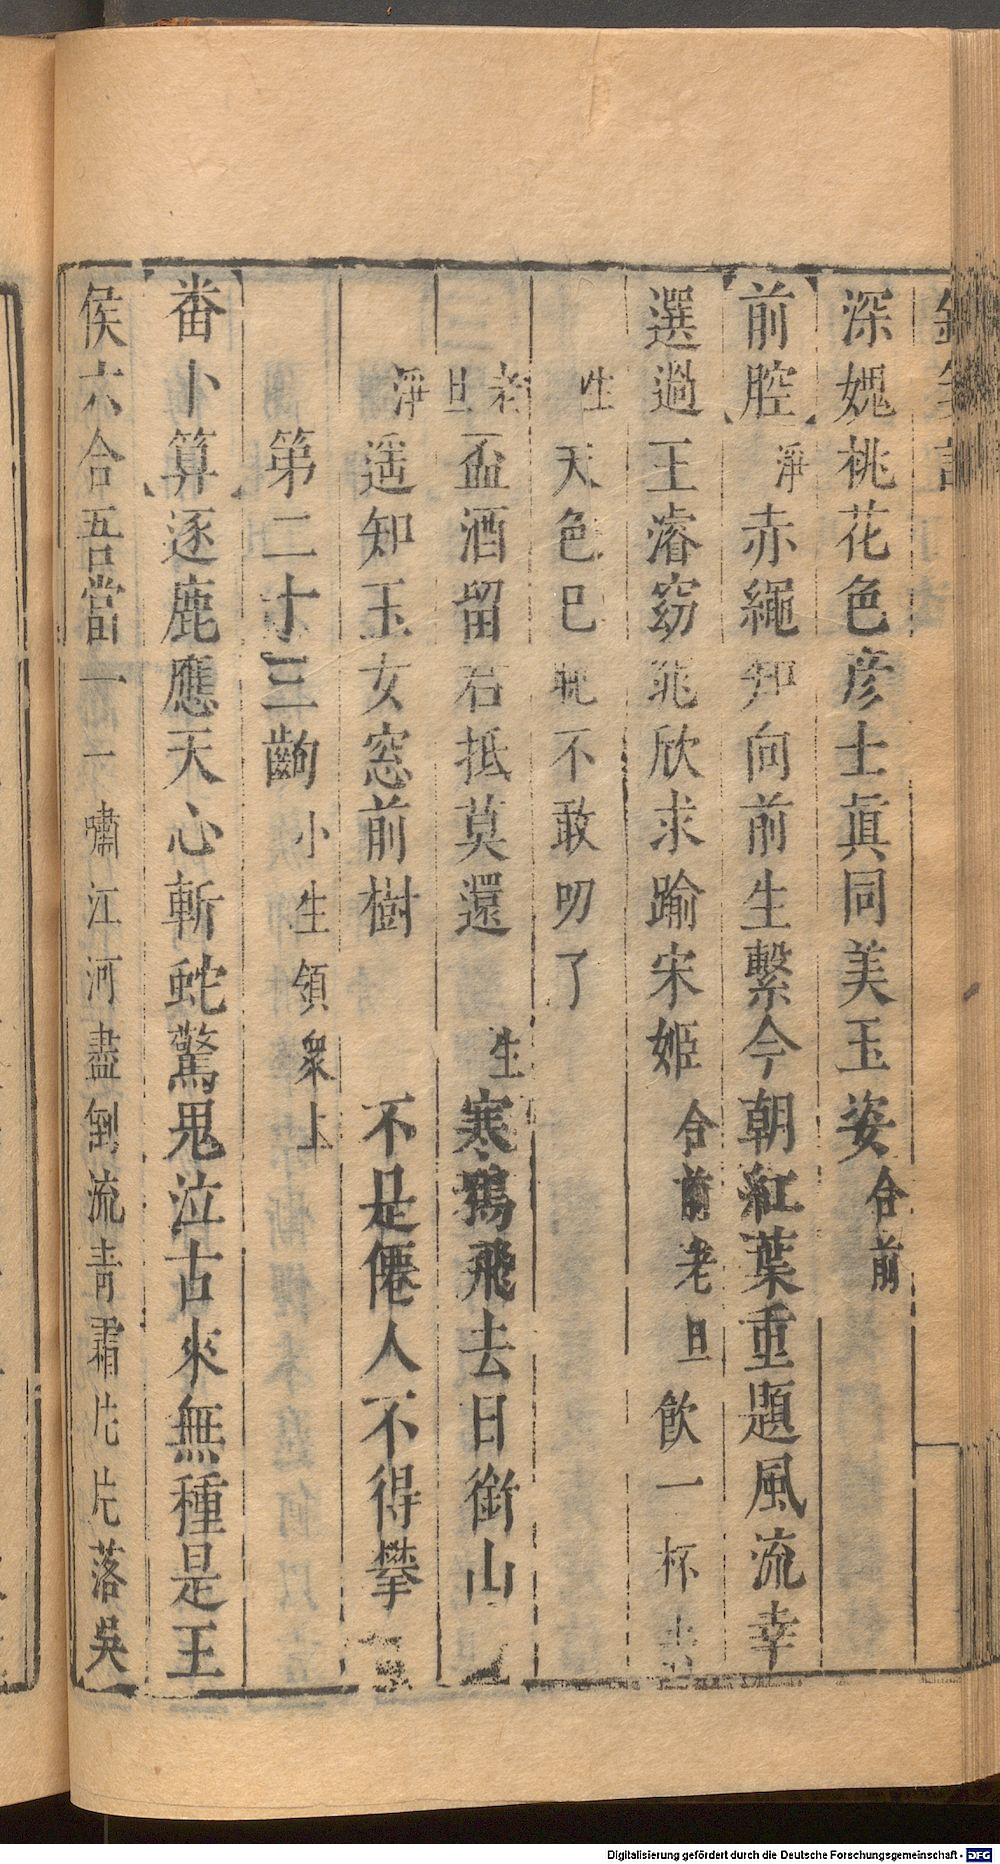 深媿桃花色彦士眞同美玉姿合前
前腔淨赤繩知向前生繫今朝紅葉重題風流幸
選過王濬窈窕欣求踰宋姬合前老旦飲一杯去
生天色已晚不敢叨了
老旦一盃酒留君抵莫還 生寒鴉飛去日銜山
淨遥知玉女窓前樹 不是僊人不得攀
第二十三齣小生領衆上
番卜算逐鹿應天心斬蛇驚鬼泣古來無種是王
侯六合吾當一一嘯江河盡倒流青霜片片落吳
Digitalisierung gefördert durch die Deutsche Forschungsgemeinschaft - DFG